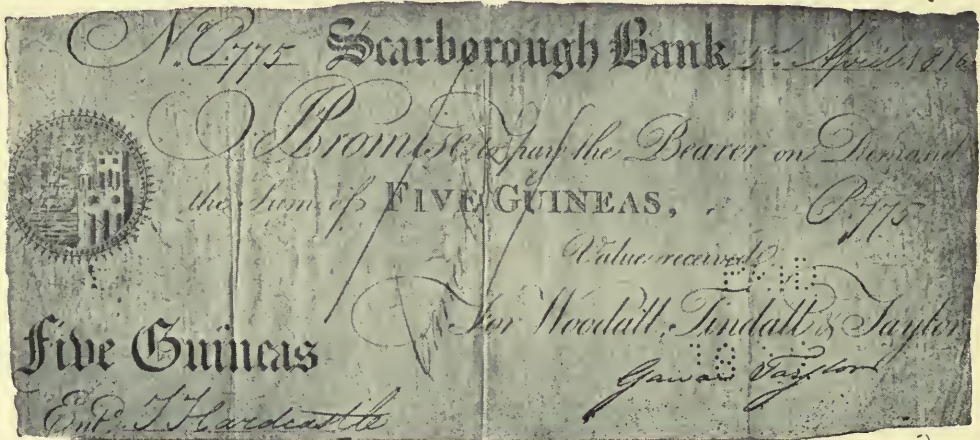 No. P.775 Scarborough Bank 2nd April 1816
I Promise to pay the Bearer on Demand
the Sum of FIVE GUINEAS, P.775
Value received
For Woodall, Tindall & Taylor
Five Guineas
Gawan Taylor
Entd. J Hardcastle